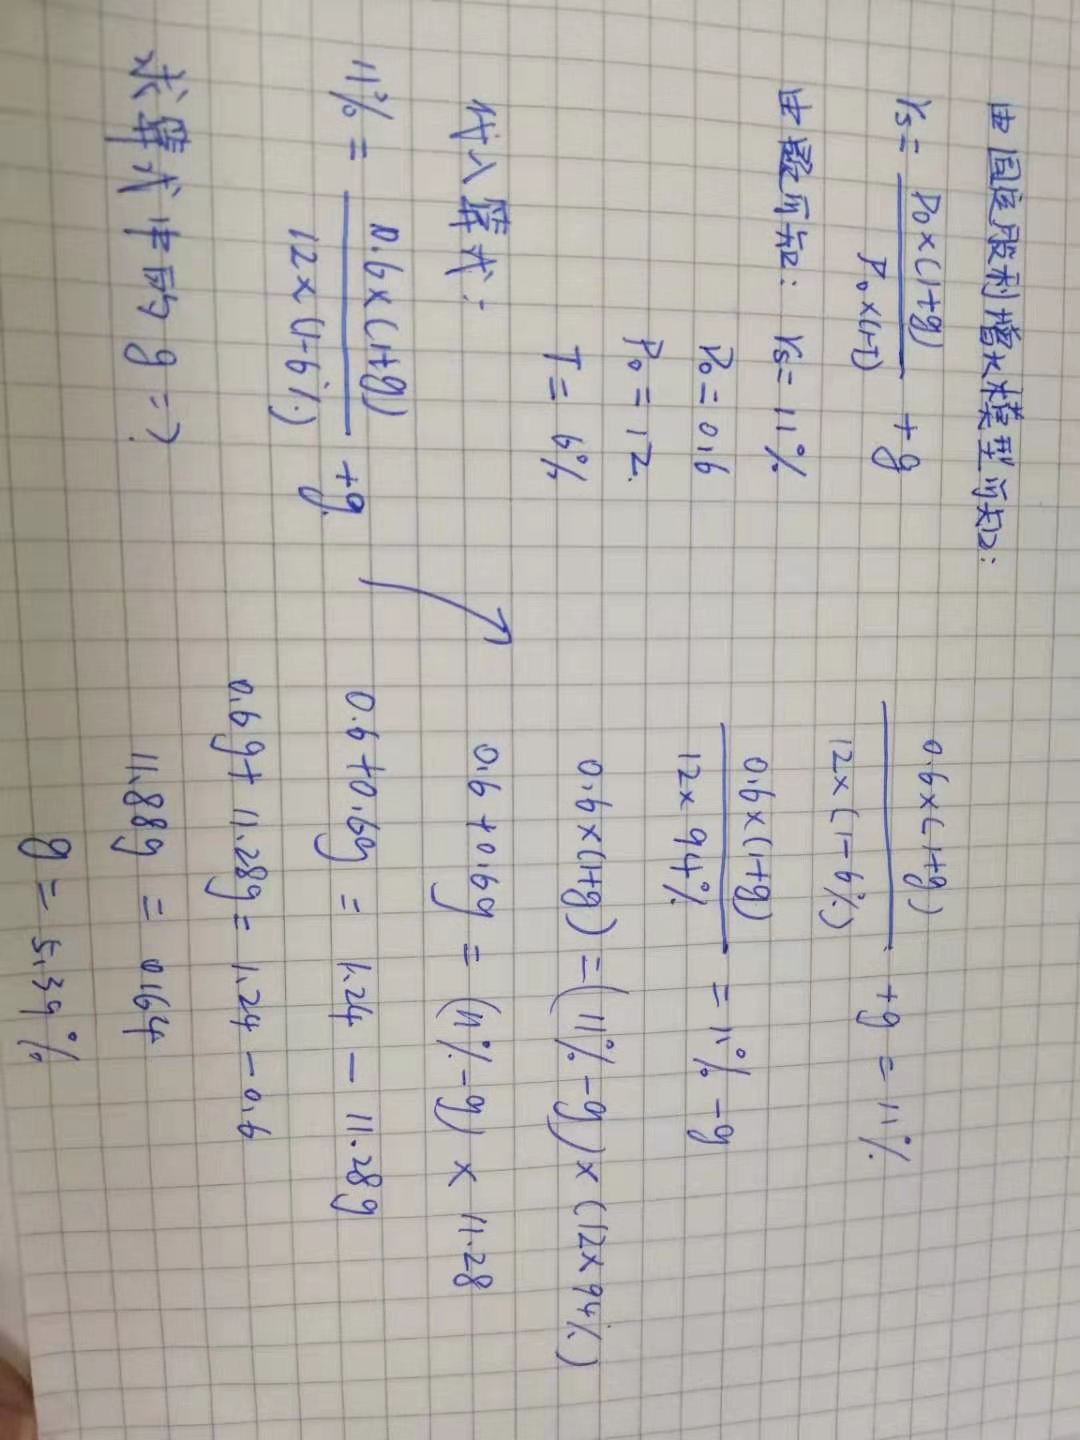 由固定股利增长模型可知:
rs = D0×(1+g) / P0×(1-T) + g
由题可知: rs = 11%
D0 = 0.6
P0 = 12.
T = 6%
代入算式:
11% = 0.6×(1+g) / 12×(1-6%) + g.
求算式中的 g = ?
0.6×(1+g) / 12×(1-6%) + g = 11%
0.6×(1+g) / 12×94% = 11% - g
0.6×(1+g) = (11% - g) × (12×94%)
0.6+0.6g = (11% - g) × 11.28
0.6+0.6g = 1.24 - 11.28g
0.6g + 11.28g = 1.24 - 0.6
11.88g = 0.64
g = 5.39%